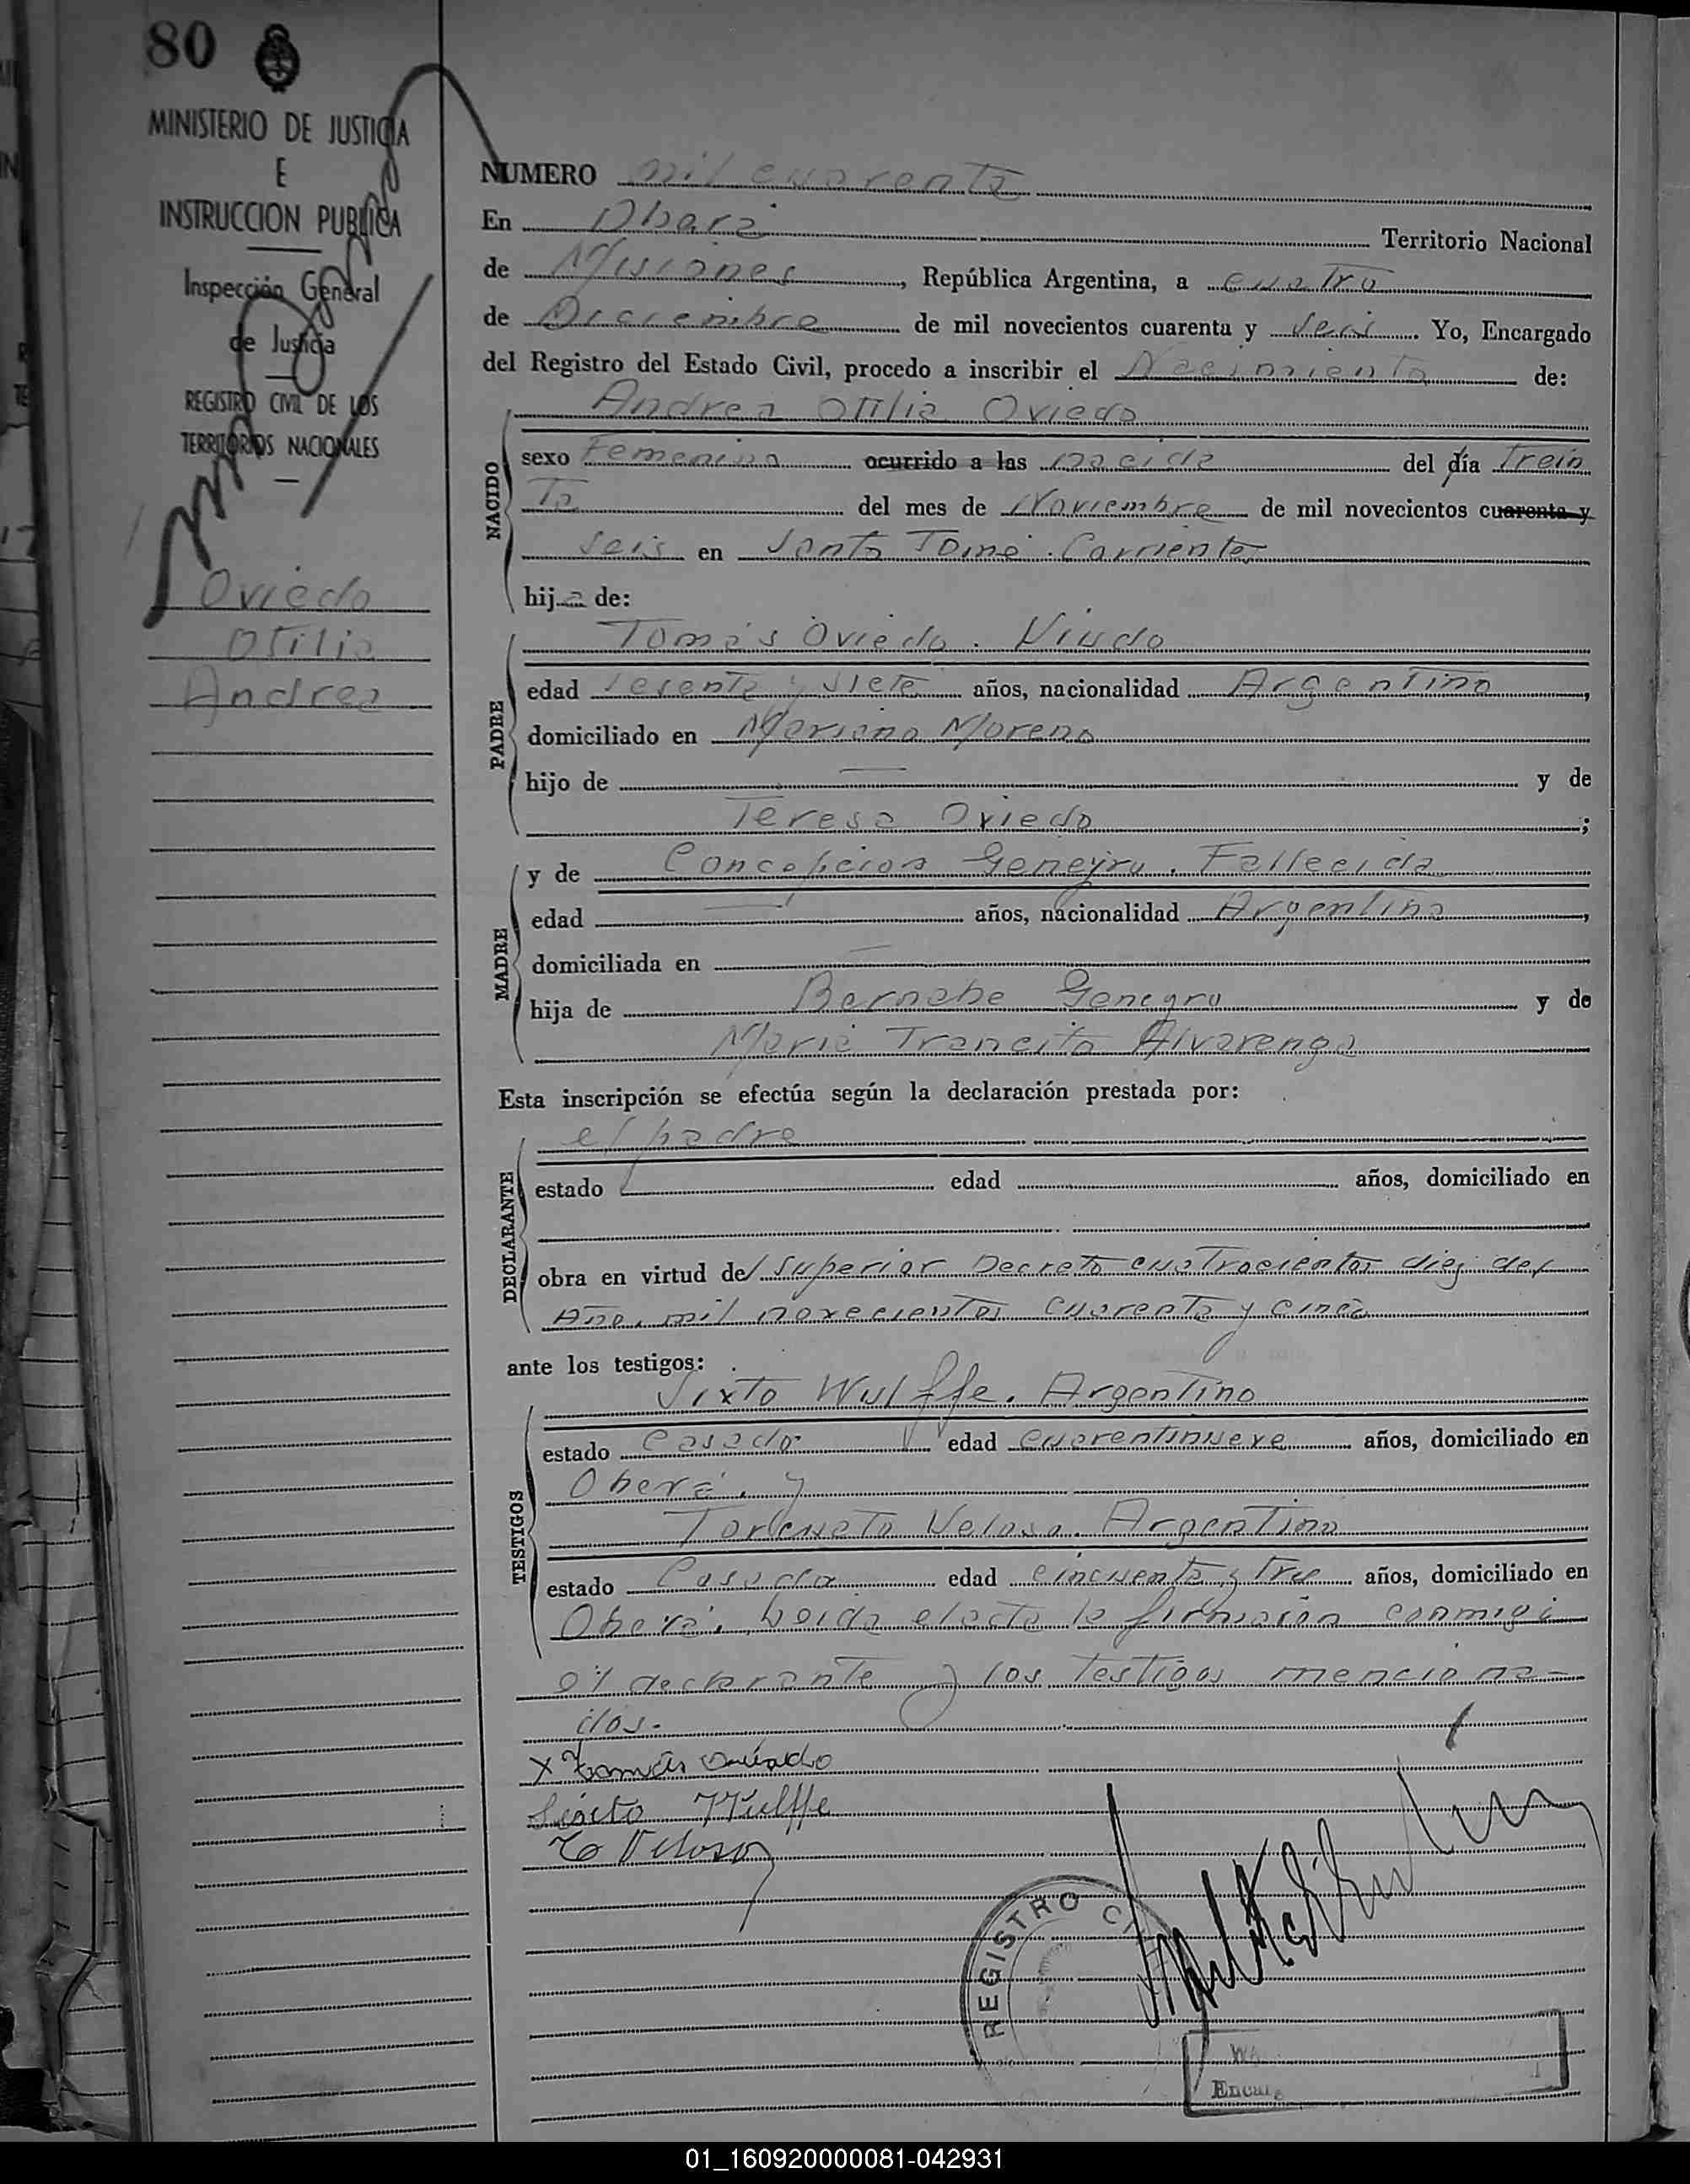 80
MINISTERIO DE JUSTICIA
E
INSTRUCCION PUBLICA
Inspección General
de Justicia
REGISTRO CIVIL DE LOS
TERRITORIOS NACIONALES
Oviedo
Otilia
Andrea
NUMERO mil cuarenta
En Oberá Territorio Nacional
de Misiones, República Argentina, a cuatro
de Diciembre de mil novecientos cuarenta y seis. Yo, Encargado
del Registro del Estado Civil, procedo a inscribir el Nacimiento de:
NACIDO
Andrea Otilia Oviedo
sexo Femenino ocurrido a las nacida del día Trein
ta del mes de Noviembre de mil novecientos cuarenta y
seis en Santo Tomé. Corrientes
hija de:
PADRE
Tomás Oviedo. Viudo
edad sesenta y siete años, nacionalidad Argentino,
domiciliado en Mariano Moreno
hijo de — y de
Teresa Oviedo;
MADRE
y de Concepcion Geneyro. Fallecida
edad — años, nacionalidad Argentina,
domiciliada en —
hija de Bernabe Geneyro y de
Maria Trancita Alvarenga
Esta inscripción se efectúa según la declaración prestada por:
DECLARANTE
el padre
estado edad años, domiciliado en
obra en virtud del Superior Decreto cuatrocientos diez del
Año. mil novecientos cuarenta y cinco
ante los testigos:
TESTIGOS
Sixto Wulffe. Argentino
estado Casado edad cuarentinueve años, domiciliado en
Oberá. y
Torcuato Veloso. Argentino
estado Casado edad cincuenta y tres años, domiciliado en
Oberá. Leida el acta la firmaron conmigo
el declarante y los testigos menciona-
dos.
x Tomás Oviedo
Sixto Wulffe
To Veloso
REGISTRO CI
Encar
01_160920000081-042931